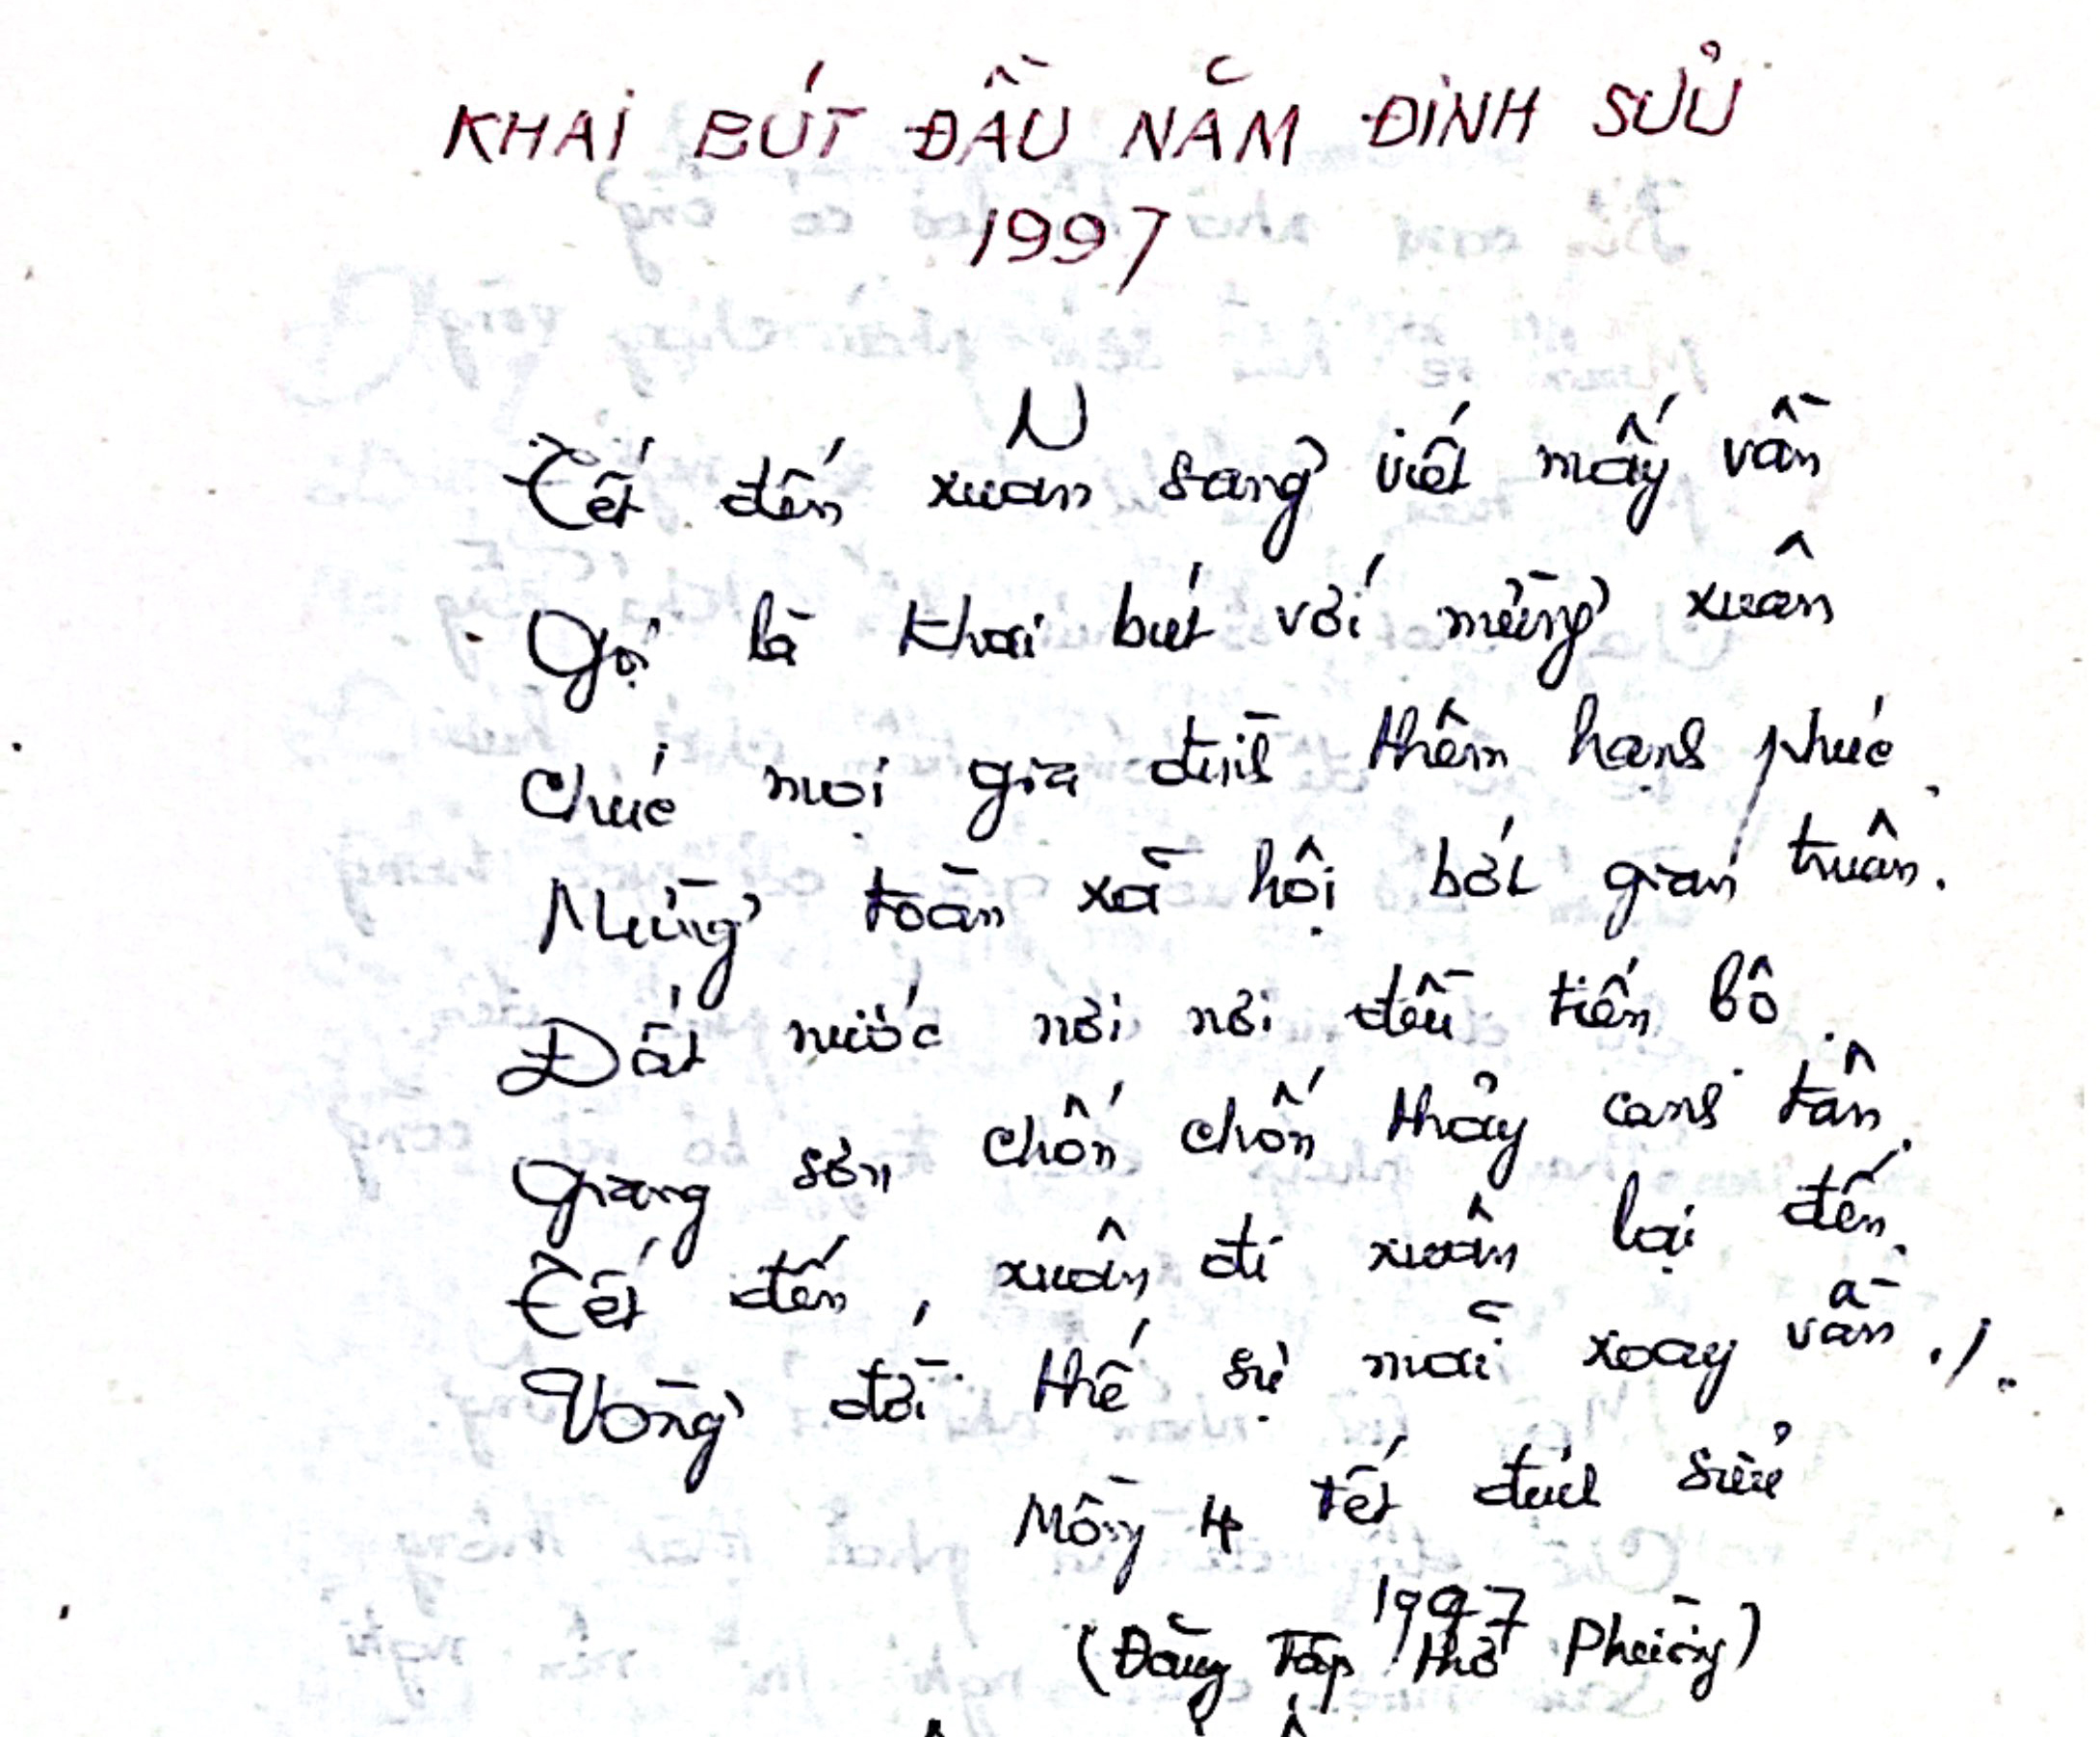 KHAI BÚT ĐẦU NĂM ĐINH SỬU
1997
Tết đến xuân sang viết mấy vần
Gọi là khai bút với mừng xuân
Chúc mọi gia đình thêm hạnh phúc
Mừng toàn xã hội bớt gian truân.
Đất nước nơi nơi đều tiến bộ.
Giang sơn chốn chốn thảy canh tân.
Tết đến, xuân đi xuân lại đến.
Vòng đời thế sự mãi xoay vần./.
Mồng 4 tết đinh sửu
1997
(Đăng Tập thơ Phường)